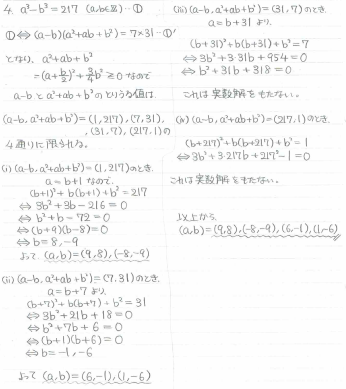 4. a³-b³=217 (a,b∈Z)…①
①⇔(a-b)(a²+ab+b²)=7×31…①'
となり、a²+ab+b²
=(a+b/2)²+3/4b²≧0なので
a-bとa²+ab+b²のとりうる値は、
(a-b, a²+ab+b²)=(1,217),(7,31),
(31,7),(217,1)の
4通りに限られる。
(i)(a-b, a²+ab+b²)=(1,217)のとき、
a=b+1なので、
(b+1)²+b(b+1)+b²=217
⇔3b²+3b-216=0
⇔b²+b-72=0
⇔(b+9)(b-8)=0
⇔b=8,-9
よって (a,b)=(9,8),(-8,-9)
(ii)(a-b, a²+ab+b²)=(7,31)のとき、
a=b+7より、
(b+7)²+b(b+7)+b²=31
⇔3b²+21b+18=0
⇔b²+7b+6=0
⇔(b+1)(b+6)=0
⇔b=-1,-6
よって (a,b)=(6,-1),(1,-6)
(iii)(a-b, a²+ab+b²)=(31,7)のとき
a=b+31より、
(b+31)²+b(b+31)+b²=7
⇔3b²+3・31b+954=0
⇔b²+31b+318=0
これは実数解をもたない。
(iv)(a-b, a²+ab+b²)=(217,1)のとき、
(b+217)²+b(b+217)+b²=1
⇔3b²+3・217b+217²-1=0
これは実数解をもたない。
以上から
(a,b)=(9,8),(-8,-9),(6,-1),(1,-6)